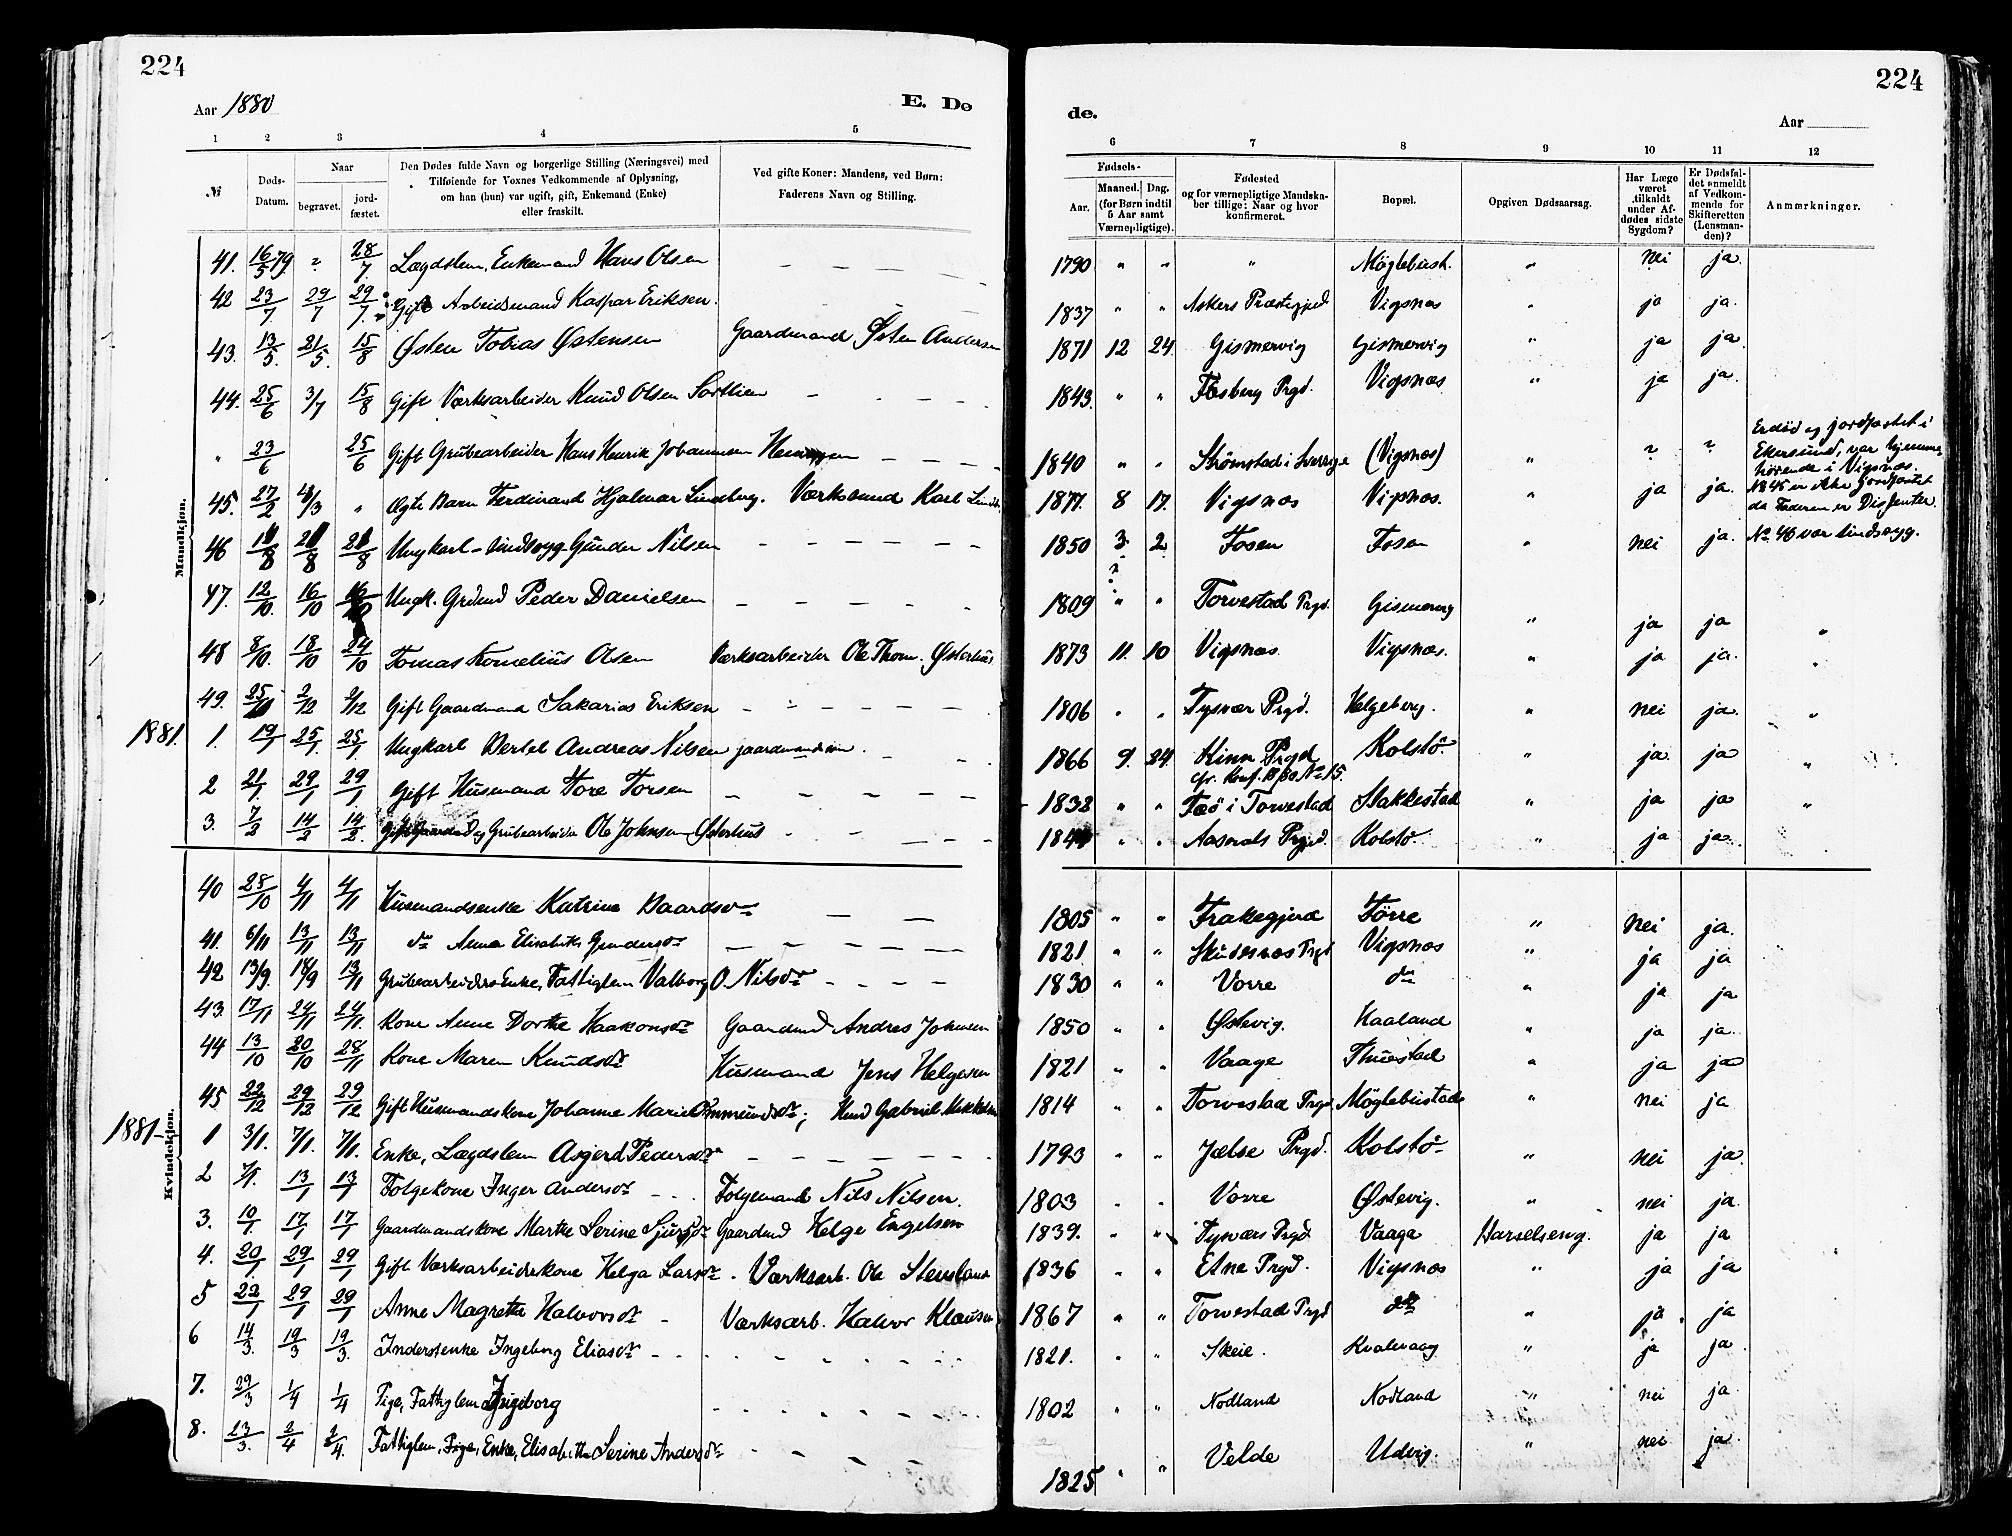 224
224
Aar 1880
E. Døde.
Aar
1 2 3 4 5 6 7 8 9 10 11 12
№
Døds-Datum.
Naar
begravet.
jordfæstet.
Den Dødes fulde Navn og borgerlige Stilling (Næringsvei) med
Tilføiende for Voxnes Vedkommende af Oplysning,
om han (hun) var ugift, gift, Enkemand (Enke)
eller fraskilt.
Ved gifte Koner: Mandens, ved Børn:
Faderens Navn og Stilling.
Fødsels-
Aar.
Maaned. Dag.
(for Børn indtil
5 Aar samt
Værnepligtige).
Fødested
og for værnepligtige Mandska-
ber tillige: Naar og hvor
konfirmeret.
Bopæl.
Opgiven Dødsaarsag.
Har Læge
været
tilkaldt
under Af-
dødes sidste
Sygdom?
Er Dødsfal-
det anmeldt
af Vedkom-
mende for
Skifteretten
(Lensman-
den)?
Anmærkninger.
Mandkjøn.
41. 16/5 79 " 28/7 Lægdslem, Enkemand Hans Olsen – – – 1790 " " " Møglebust. " nei ja.
42 23/7 29/7 29/7 Gift Arbeidsmand Kaspar Eriksen. 1837 " " Askers Præstegjed Vigsnæs " ja ja.
43. 13/5. 21/5. 15/8 Østen Tobias Østensen Gaardmand Østen Andersen 1871 12 24 Gismervig Gismervig " ja ja.
44. 25/6 3/7 15/8 Gift Værksarbeider Knud Olsen Sortlien – – – 1843. " " Fosberg Prgd. Vigsnæs " ja ja.
" 23/6 25/6 Gift Grubearbeider Hans Henrik Johannsen 1840 " " Strømstad i Sverrige (Vigsnæs) " ? ? Er död og jordfæstet i
Ekersund, var hjemme-
hörende i Vigsnæs.
45. 27/2 /3 " Ægte Barn Ferdinand Hjalmar Lindberg. Værksmand Karl Lindb. 1877. 8 17. Vigsnæs Vigsnæs. " ja ja. No 45 er ikke jordfæstet
da Faderen er Dissenter.
46 11/8 21/8 21/8 Ungkarl – sindssyg – Gunder Nilsen – – – 1850 3 2 Fosen Fosen " nei ja. No 46 var sindssyg.
47. 12/10. 16/10 16/10 Ungk. Grdmd Peder Danielsen – – – 1809 " " Torvestad Prgd. Gismervig " ja ja "
48 8/10. 18/10 24/10 Tomas Kornelius Olsen Værksarbeider Ole Thom. Østerhus 1873 11. 10 Vigsnæs Vigsnæs. " ja ja. "
49. 25/11 2/12 2/12 Gift Gaardmand Sakarias Eriksen – – – 1806 " " Tysvær Prgd. Helgeberg. " nei ja. "
1881. 1. 19/1 25/1. 25/1. Ungkarl Bertel Andreas Nilsen gaardmandssön. 1866 9. 24. Kinn Prgd Kolstö. " ja ja "
cfr. Konf. 1880 No 15.
2 21/1 29/1 29/1 Gift Husmand Tore Torsen – – – 1832 " " Feö i Torvestad Stakkestad " ja ja "
3. 7/2 14/2 14/2. Gift Gaardmd og Grubearbeider Ole Johnsen Østerhus – – – 184 " " Aaserals Prgd. Kolstö. " ja ja.
Kvindekjøn.
40 28/10 4/11 4/11 Husmandsenke Katrine Baardsdr – – 1805 " " Frakegjerd Førre " nei ja.
41. 6/11 13/11 13/11 do Anne Elisabeth Gundersdr – – – 1821 " " Skudesnæs Prgd Vigsnæs " ja ja
42 13/9. 18/9 13/11 Grubearbeidersenke, Fattiglem Valborg O. Nilsdr – – – 1830 " " Vorre do " ja ja
43. 17/11 24/11 24/11. Kone Anne Dorthe Haakonsdr Gaardmd Andres Johnsen 1850 " " Østevig. Haaland " ja ja.
44 13/10 20/10 28/11 Kone Maren Knudsdr Husmand Jens Helgesen 1821 " " Vaage Thuestad " ja ja
45 22/12 29/12 29/12 Gift Husmandskone Johanne Marie Ommundsdr; Hmd Gabriel 1814 " " Torvestad Prgd. Møglebustad " nei ja
1881. 1 3/1. 7/1. 7/1. Enke, Lægdslem Asgerd Pedersdr – – – 1793 " " Jelse Prgd. Kolstö " nei ja.
2 7/1. 13/1 13/1 Folgekone Inger Andersdr – – Folgemand Nils Nilsen. 1803 " " Vorre Østevig. " nei ja.
3. 10/1 17/1 17/1 Gaardmandskone Marthe Serine Sjursdr Gaardmd Helge Engelsen 1839. " " Tysvær Prgd Vaaga Barselseng. ja ja
4. 20/1. 29/1 29/1 Gift Værksarbeiderskone Helga Larsdr. Værksarb. Ole Stensland 1836 " " Etne Prgd. Vigsnæs " ja ja
5 22/1 29/1 29/1 Anne Magrethe Halvorsdr – Værksarb. Halvor Klausen 1867 " " Torvestad Prgd do " ja. ja
6 14/3. 19/3 19/3. Inderstenke Ingeborg Eliasdr – – – 1821. " " Skeie. Kvalevaag " ja ja.
7. 29/3 1/4 1/4 Pige, Fattiglem Ingeborg – – – 1802 " " Nodland Nodland " nei ja.
8. 23/3. 2/4 2/4. Fattiglem, Pige, Enke, Elisabeth Serine Andersdr – – – 1825 " " Velde Udvig. " nei ja.